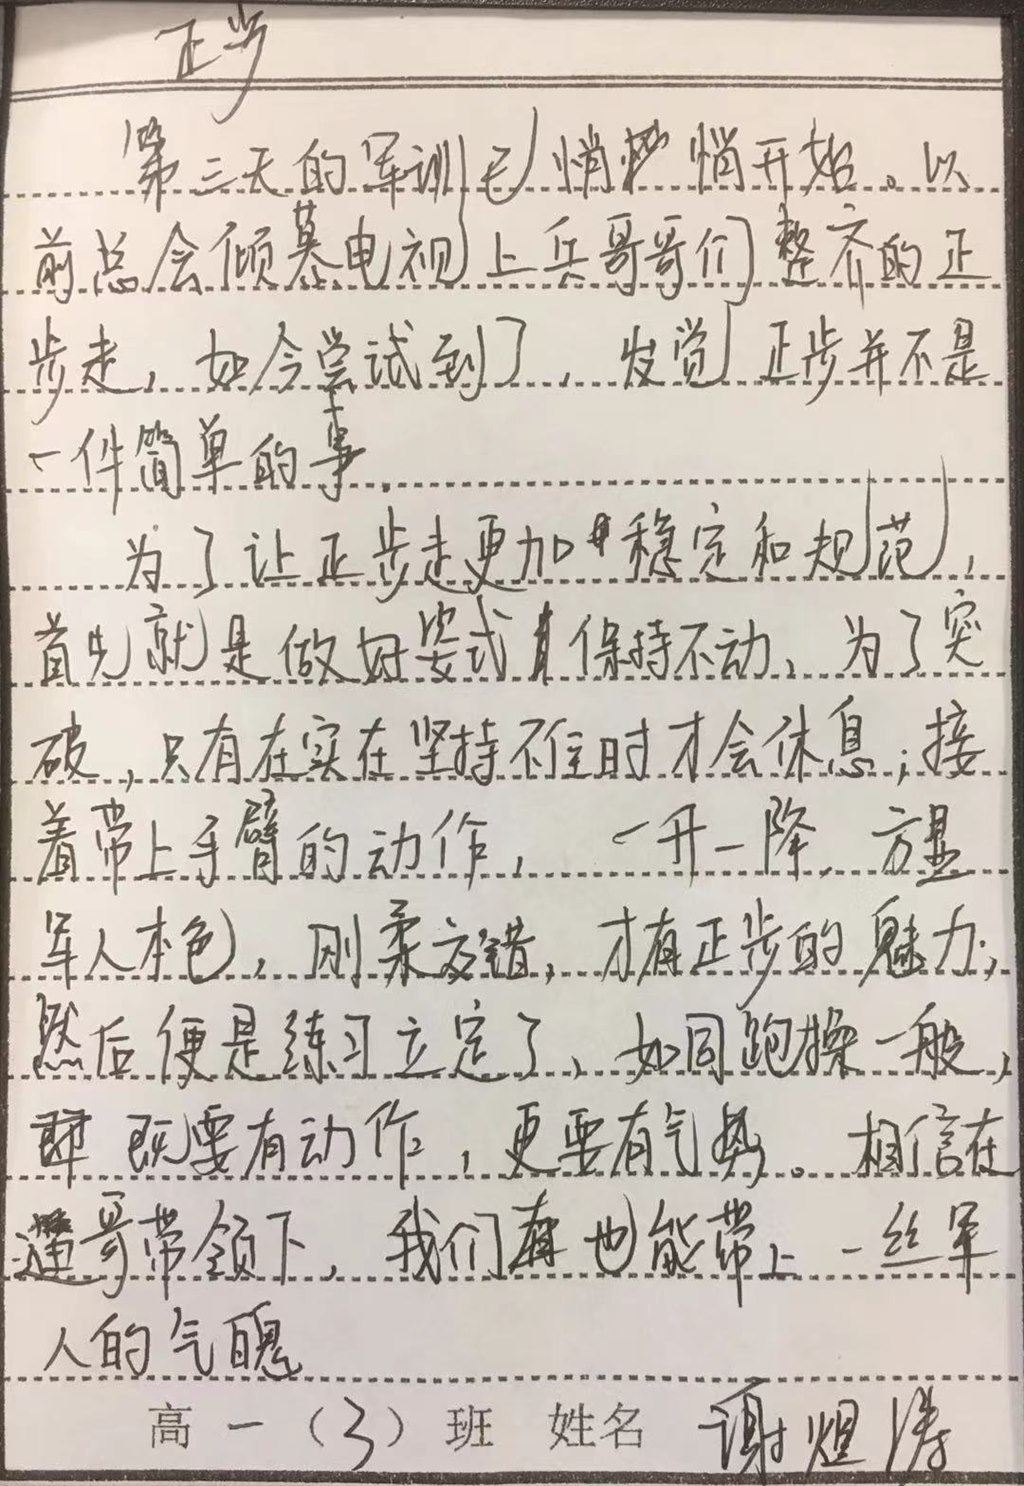 正步
第三天的军训已悄悄开始。以
前总会倾慕电视上兵哥哥们整齐的正
步走，如今尝试到了，发觉正步并不是
一件简单的事.
为了让正步走更加稳定和规范，
首先就是做好姿式保持不动，为了突
破，只有在实在坚持不住时才会休息；接
着带上手臂的动作，一升一降，方显
军人本色，刚柔交错，才有正步的魅力；
然后便是练习立定了，如同跑操一般，
既要有动作，更要有气势。相信在
哥带领下，我们也能带上一丝军
人的气魄
高一（3）班 姓名 谢煜涛